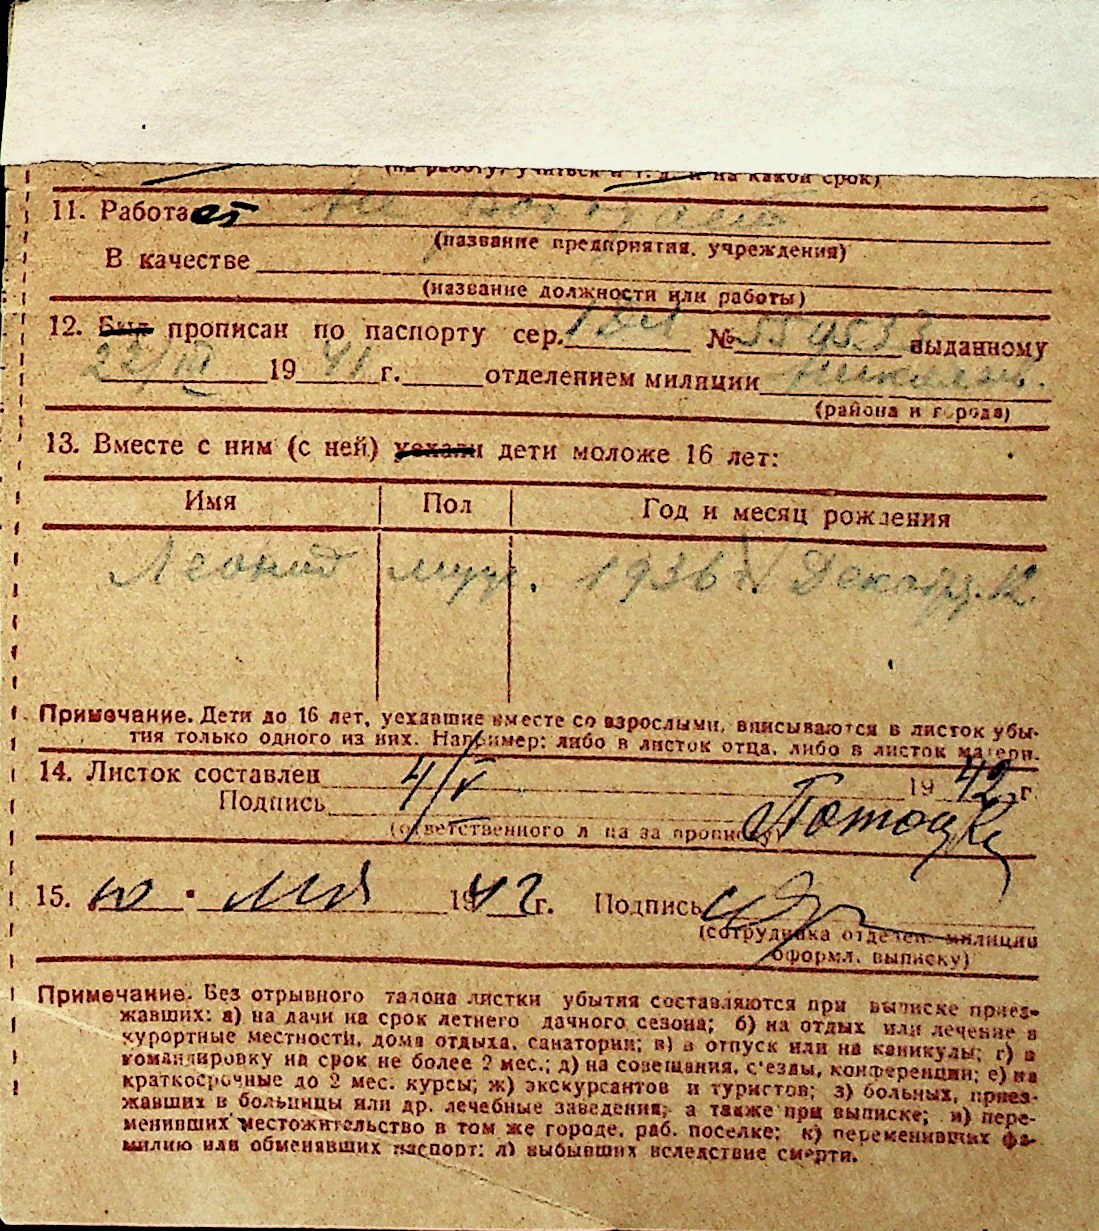 (на работу, учиться и т. д. и на какой срок)
11. Работает
(название предприятия, учреждения)
В качестве
(название должности или работы)
12. Был прописан по паспорту сер. № 559533 выданному
22/III 1941 г. отделением милиции
(района и города)
13. Вместе с ним (с ней) уехали дети моложе 16 лет:
Имя Пол Год и месяц рождения
Леонид муж. 1936 г. Декабр. 12.
Примечание. Дети до 16 лет, уехавшие вместе со взрослыми, вписываются в листок убы-
тия только одного из них. Например: либо в листок отца, либо в листок матери.
14. Листок составлен 4/V 1942 г.
Подпись
(ответственного лица за прописку)
15. 10 • мая 1942 г. Подпись
(сотрудника отделен. милиции
оформл. выписку)
Примечание. Без отрывного талона листки убытия составляются при выписке приез-
жавших: а) на дачи на срок летнего дачного сезона; б) на отдых или лечение в
курортные местности, дома отдыха, санатории; в) в отпуск или на каникулы; г) в
командировку на срок не более 2 мес.; д) на совещания, с'езды, конференции; е) на
краткосрочные до 2 мес. курсы; ж) экскурсантов и туристов; з) больных, приез-
жавших в больницы или др. лечебные заведения, а также при выписке; и) пере-
менивших местожительство в том же городе, раб. поселке; к) переменивших фа-
милию или обменявших паспорт; л) выбывших вследствие смерти.